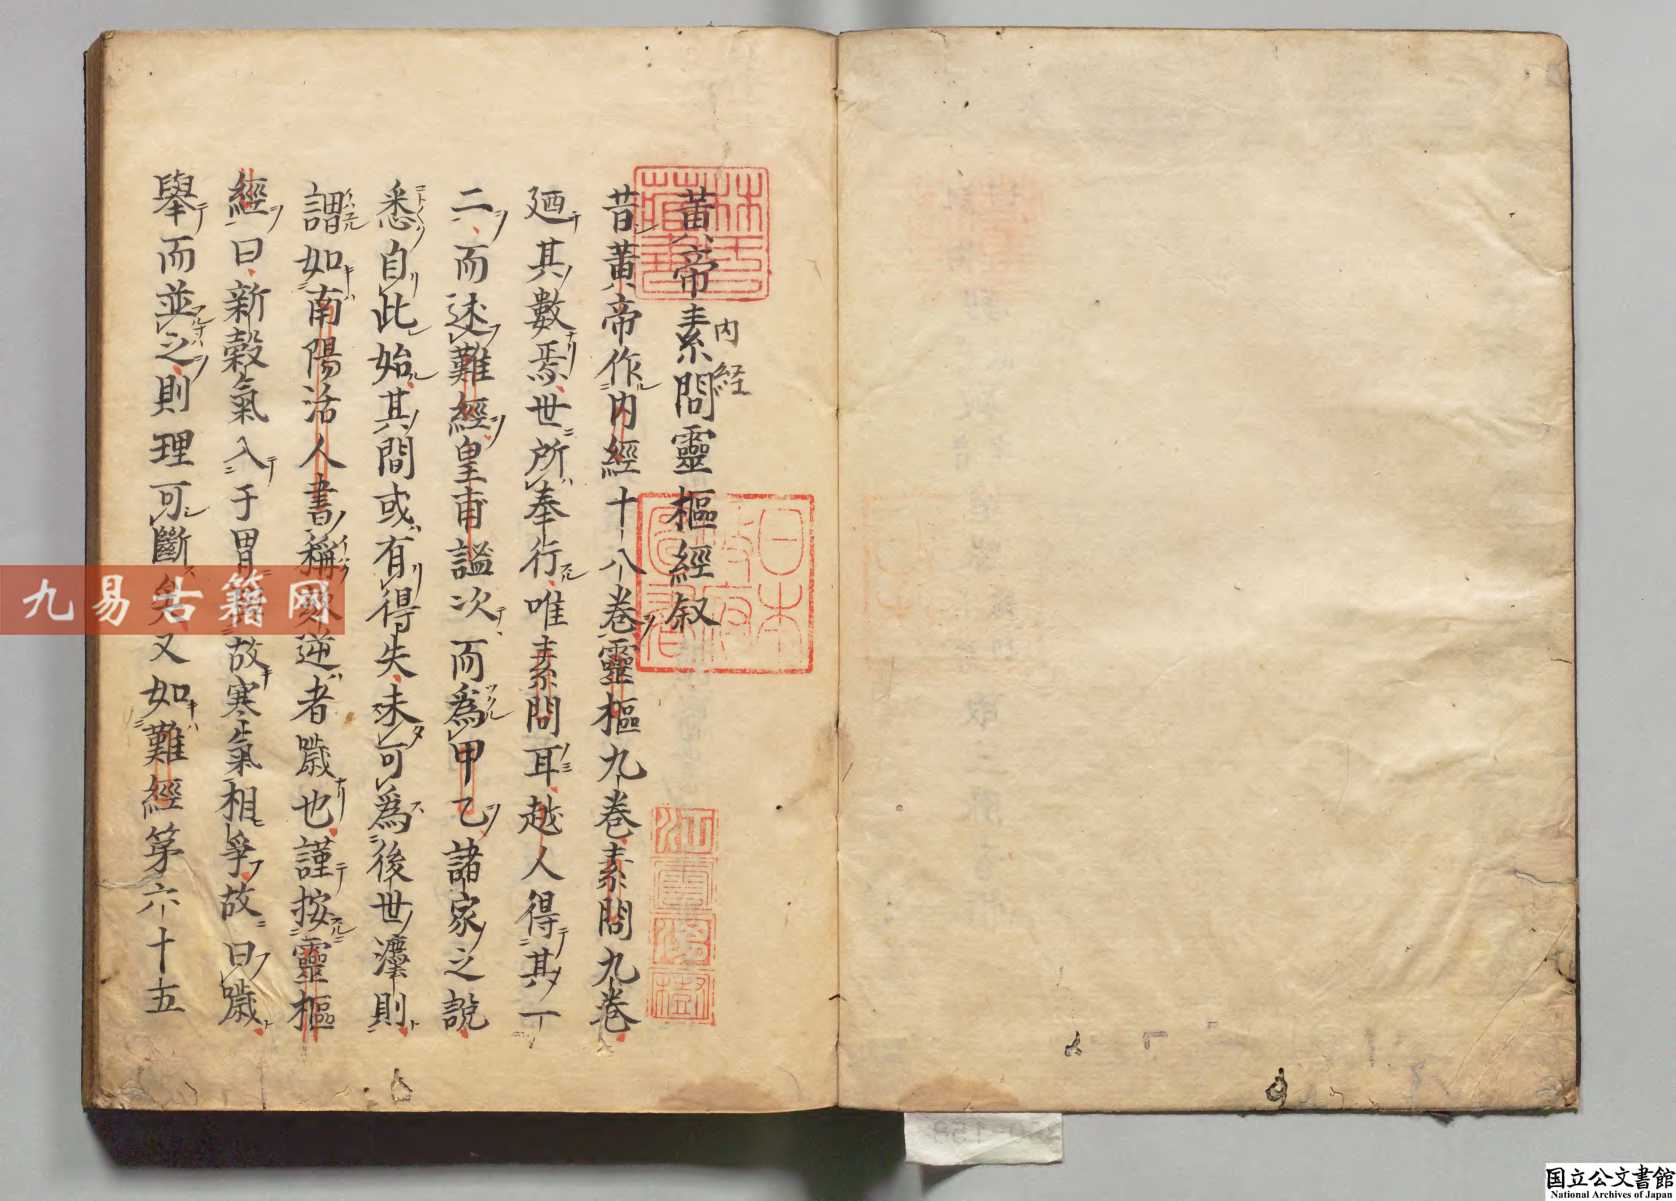 黃帝素問靈樞經叙
内経
昔黃帝作内經十八卷靈樞九卷素問九卷
廼其數焉世所奉行唯素問耳越人得其一
二而述難經皇甫謐次而爲甲乙諸家之說
悉自此始其間或有得失未可爲後世灋則
謂如南陽活人書稱欬逆者噦也謹按靈樞
經曰新穀氣入于胃故寒氣相爭故曰噦
舉而並之則理可斷矣又如難經第六十五
林氏
藏書
日本
政府
圖書
江雲渭樹
九易古籍网
国立公文書館
National Archives of Japan